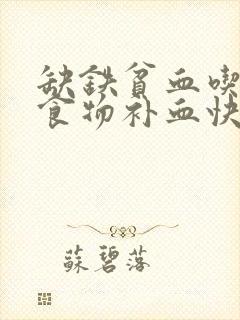 缺鉄貧血喫
食物补血快
蘇碧落